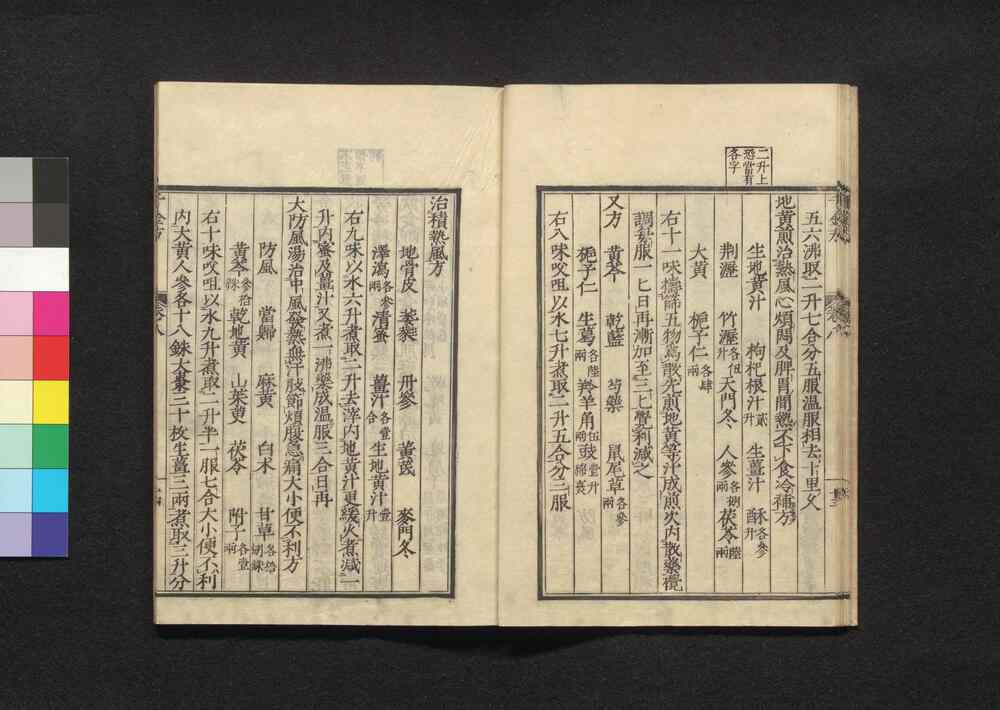 二升上
恐當有
各字
五六沸取二升七合分五服溫服相去十里久
地黃煎治熱風心煩悶及脾胃間熱不下食冷補方
生地黃汁 枸杞根汁貳升 生薑汁 酥各參升
荆瀝 竹瀝各伍升 天門冬 人參各捌兩 茯苓陸兩
大黃 梔子仁各肆兩
右十一味擣篩五物為散先煎地黃等汁成煎次內散藥攪
調每服一匕日再漸加至三匕覺利減之
又方 黃芩 乾藍 芍藥 鼠尾草各參兩
梔子仁 生葛各陸兩 羚羊角伍兩 豉壹升綿裹
右八味㕮咀以水七升煮取二升五合分三服
治積熱風方
地骨皮 萎蕤 丹參 黃耆 麥門冬
澤瀉各參兩 清蜜 薑汁各壹合 生地黃汁壹升
右九味以水六升煮取二升去滓內地黃汁更緩火煮減一
升內蜜及薑汁又煮一沸藥成溫服三合日再
大防風湯治中風發熱無汗肢節煩腹急痛大小便不利方
防風 當歸 麻黃 白朮 甘草各拾捌銖
黃芩參拾銖 乾地黃 山茱萸 茯苓 附子各壹兩
右十味㕮咀以水九升煮取二升半一服七合大小便不利
內大黃人參各十八銖大棗三十枚生薑三兩煮取三升分